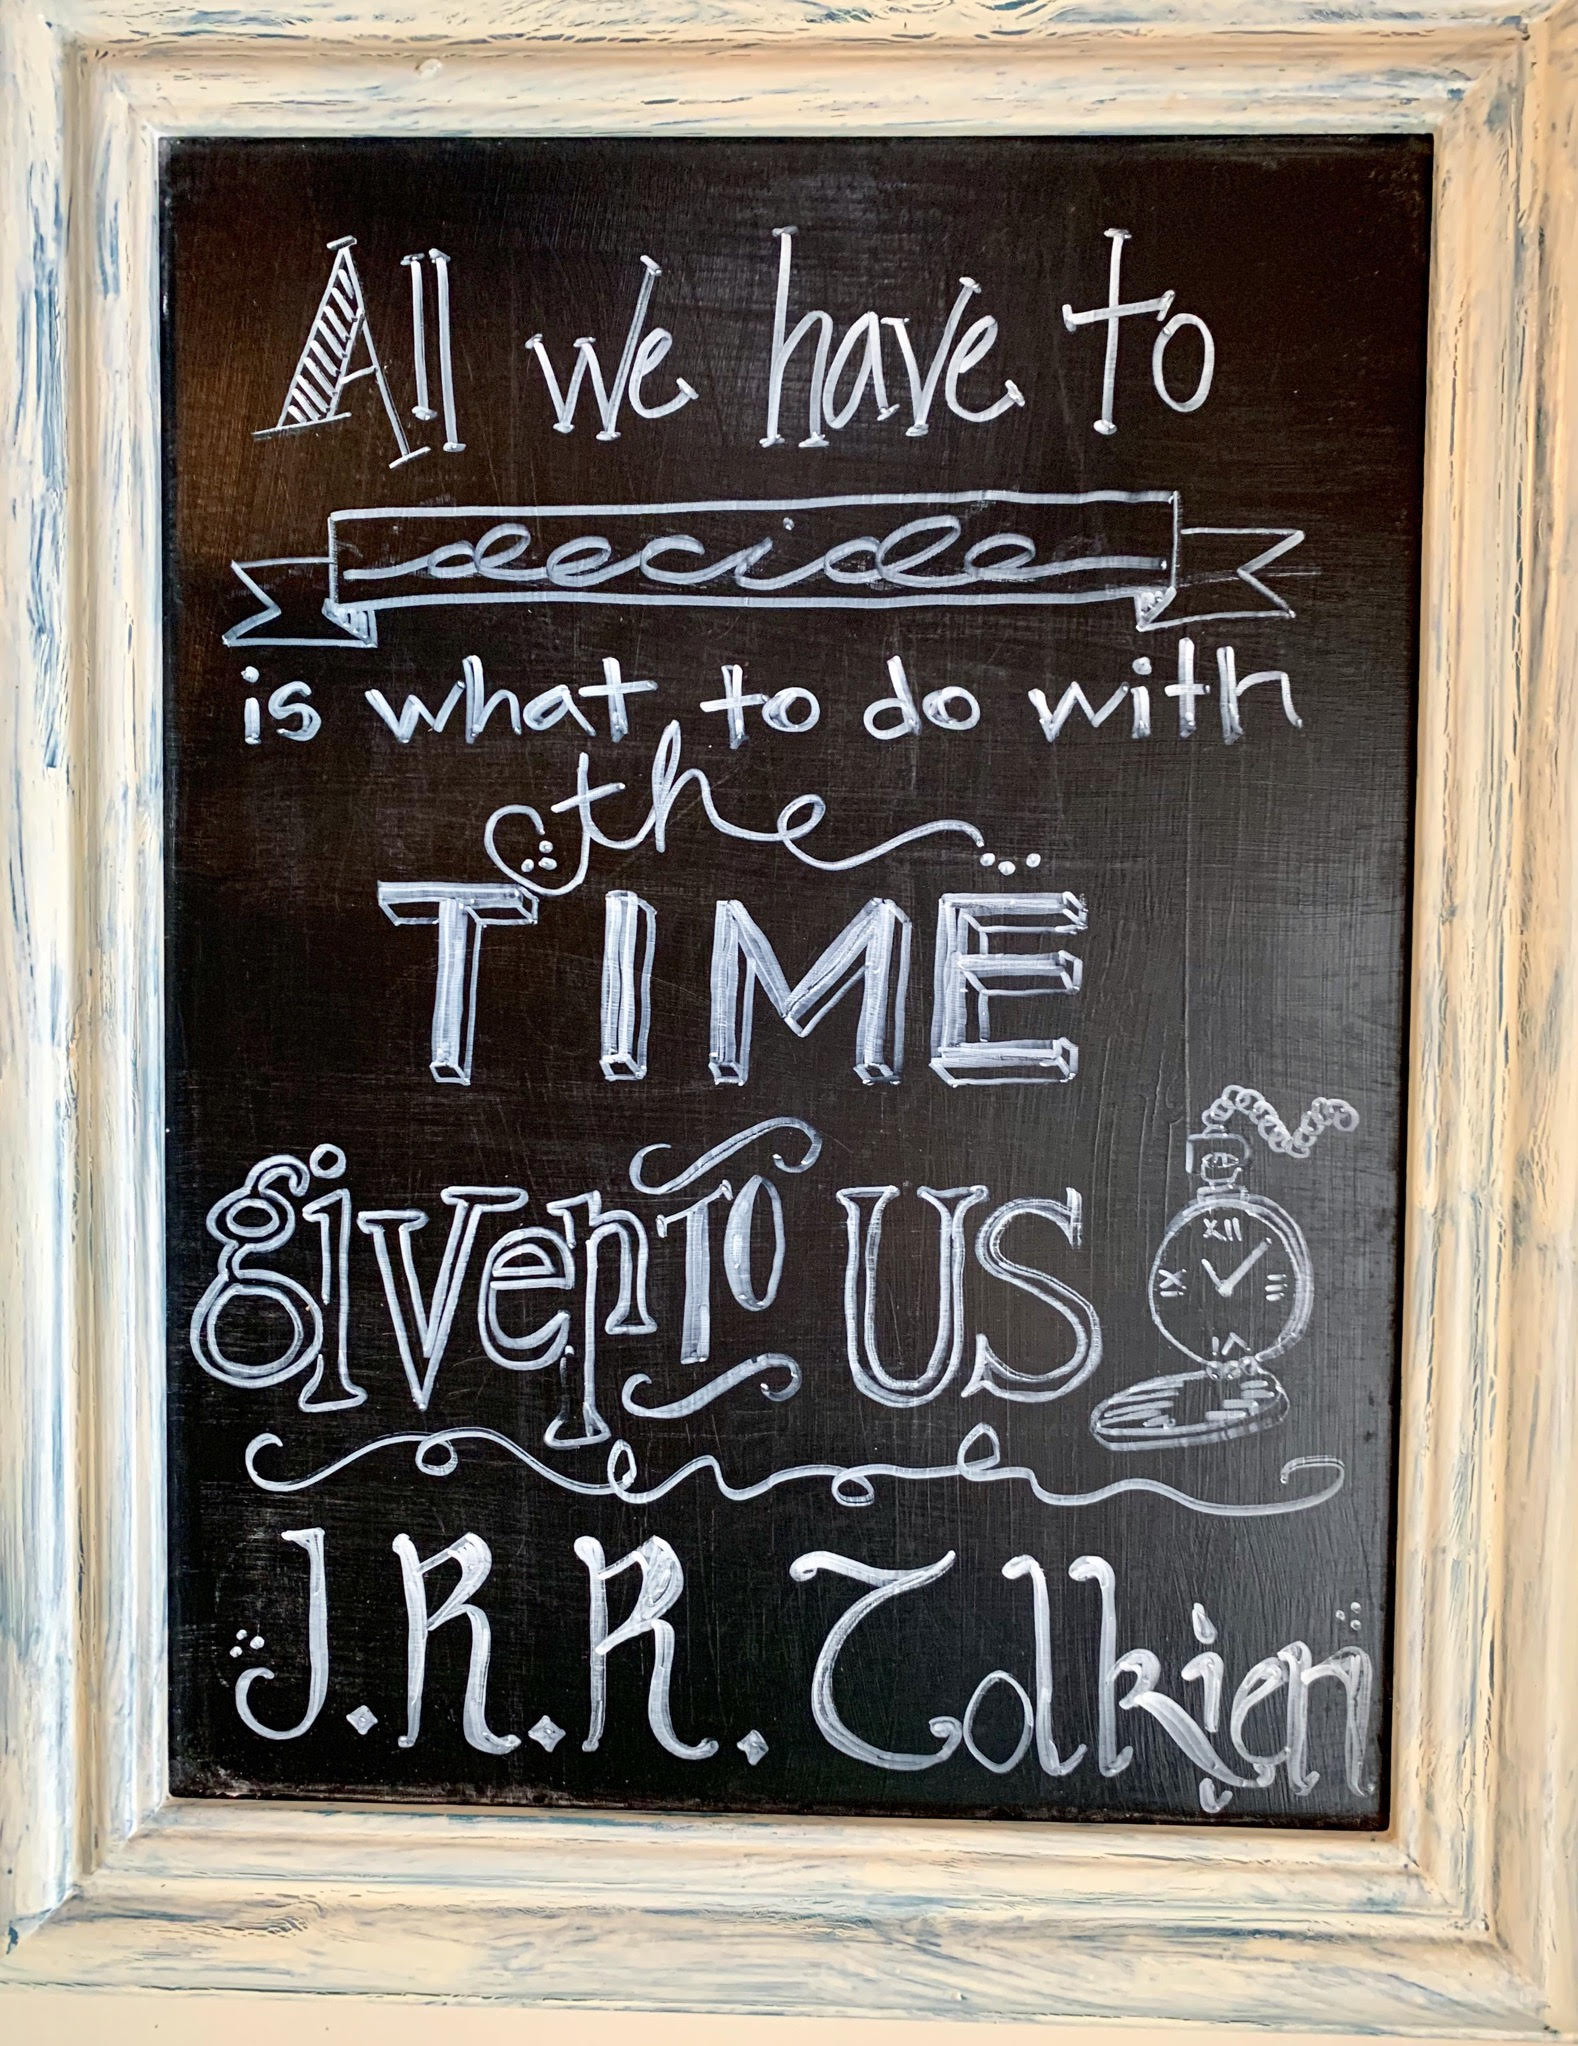 All we have to
decide
is what to do with
the
TIME
given To US
XII
IX III
VI
J.R.R. Tolkien